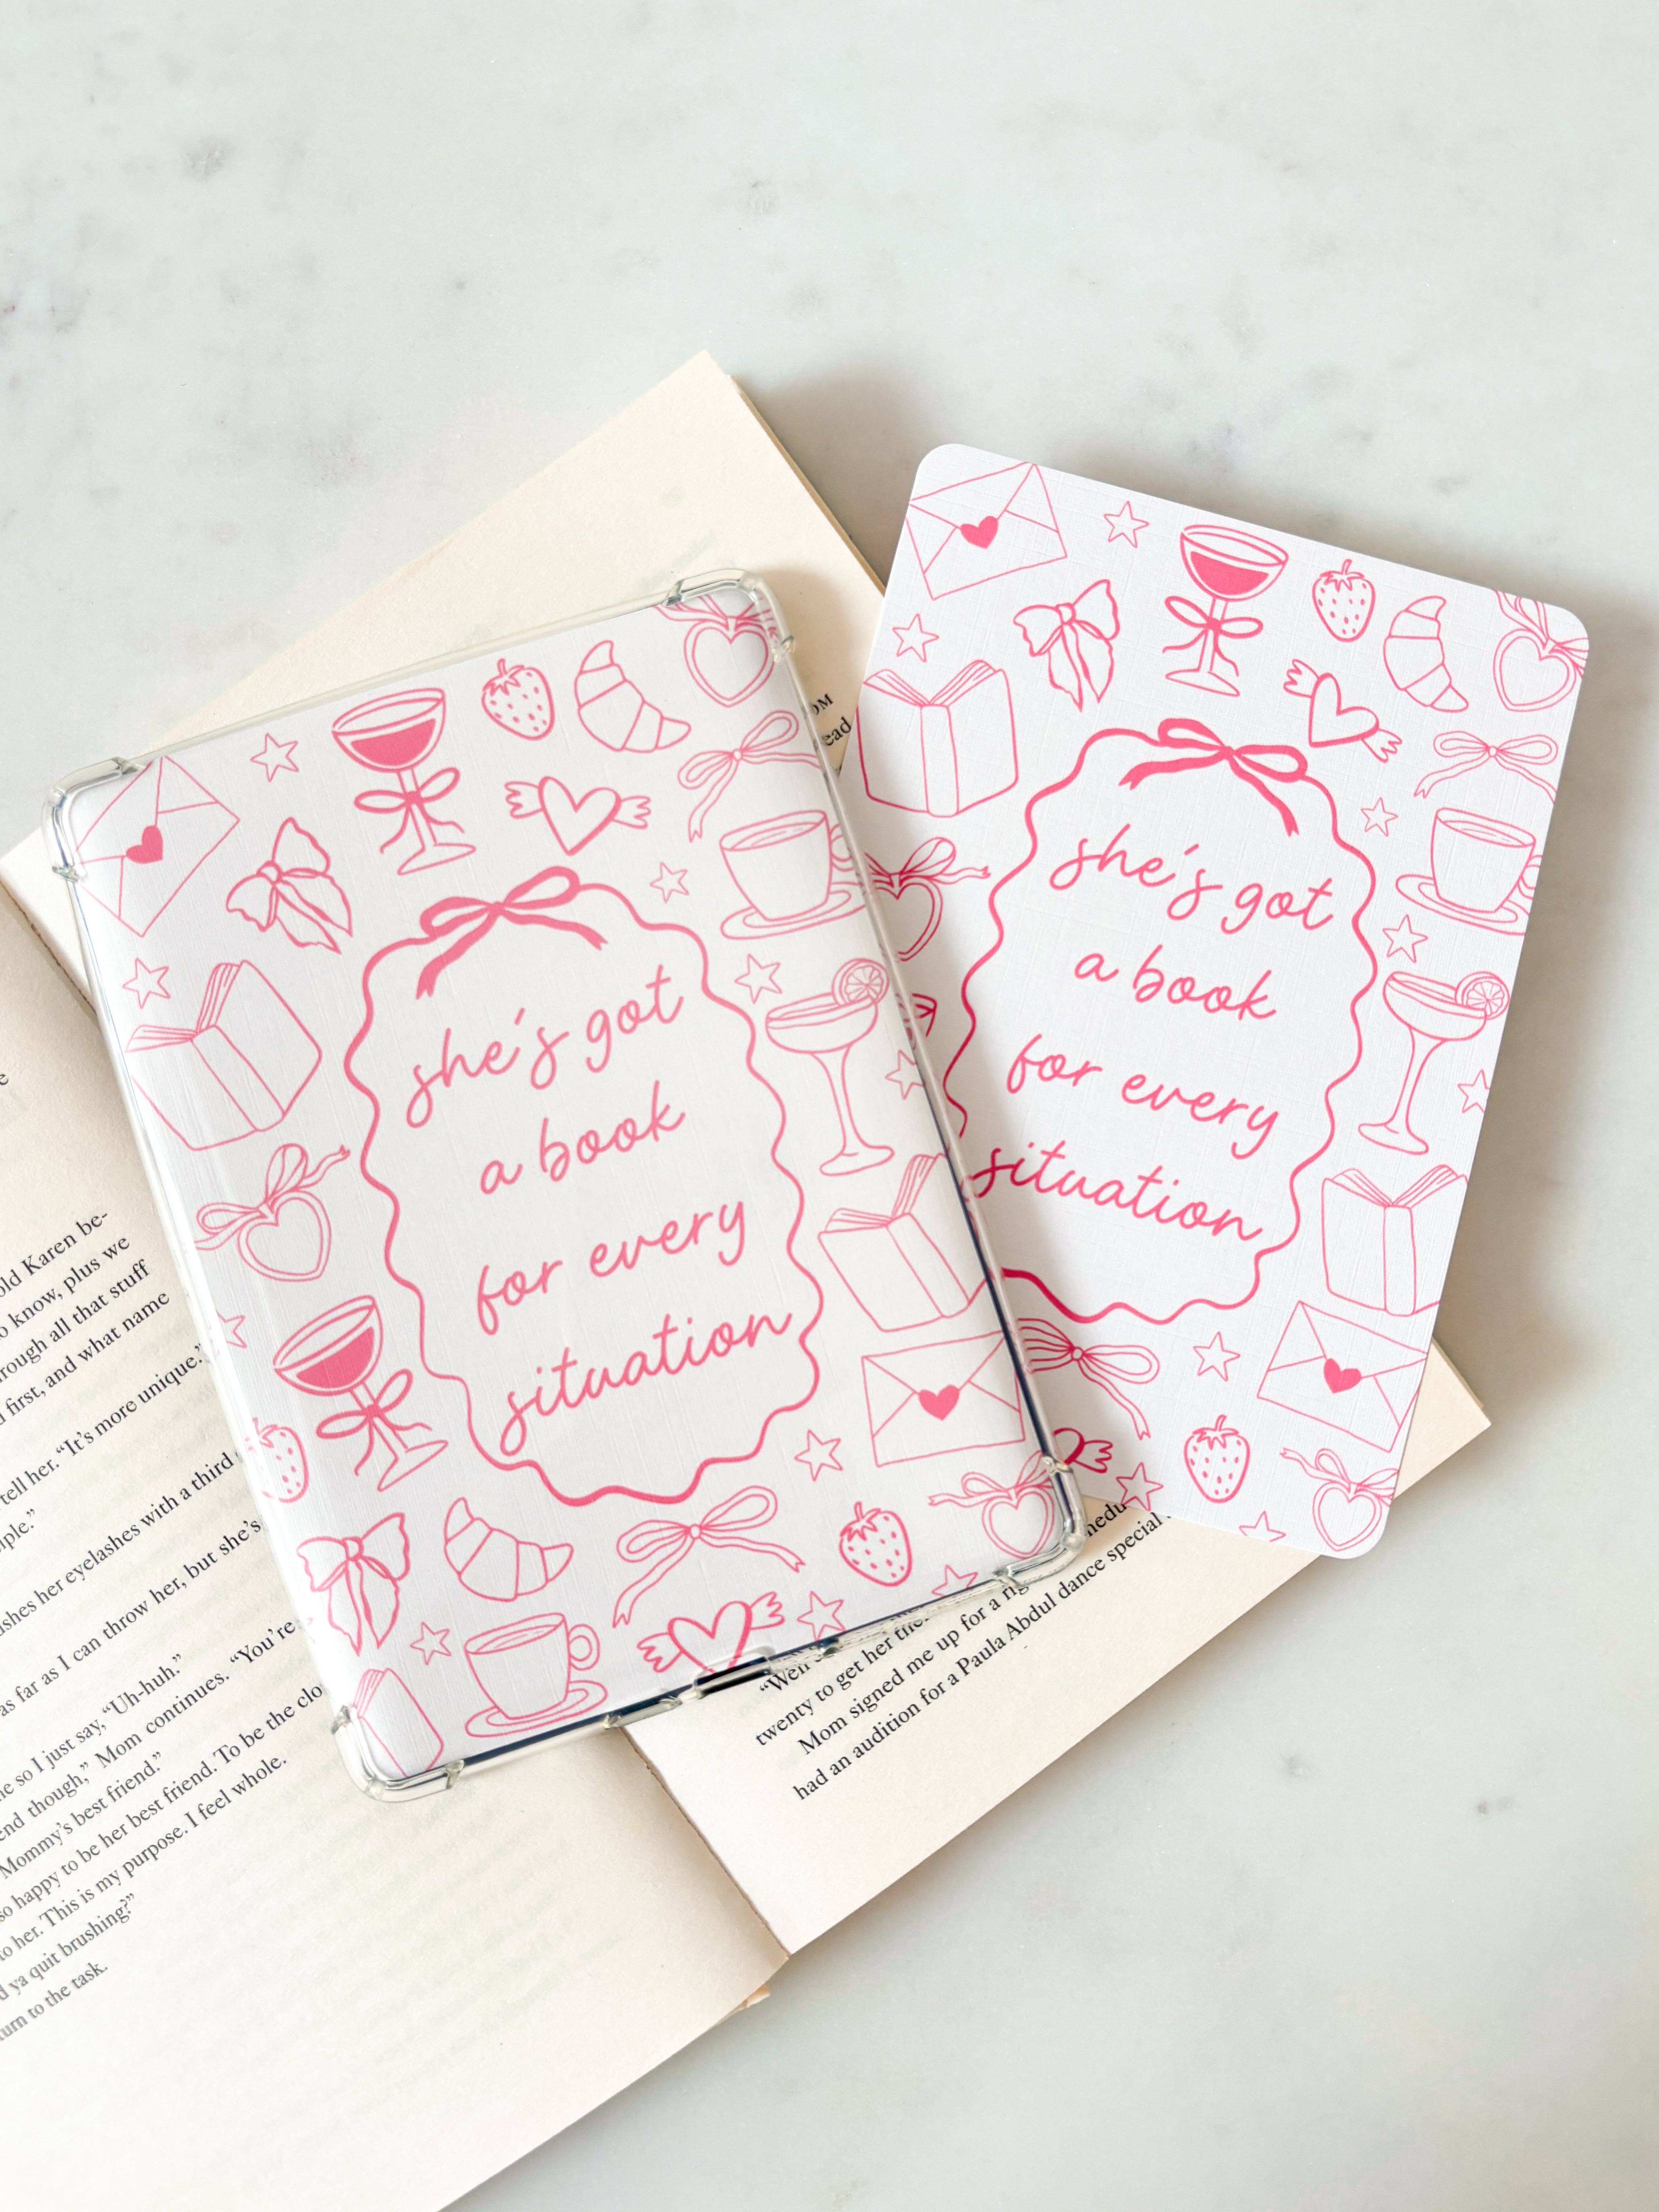 she's got
a book
for every
situation
she's got
a book
for every
situation
OM
ead
old Karen be-
o know, plus we
rough all that stuff
first, and what name
tell her. “It’s more unique.”
ple.”
shes her eyelashes with a third
as far as I can throw her, but she’s
e so I just say, “Uh-huh.”
end though,” Mom continues. “You’re
Mommy’s best friend.”
so happy to be her best friend. To be the clo
to her. This is my purpose. I feel whole.
ya quit brushing?”
turn to the task.
“Well
twenty to get her the
Mom signed me up for a
had an audition for a Paula Abdul dance special